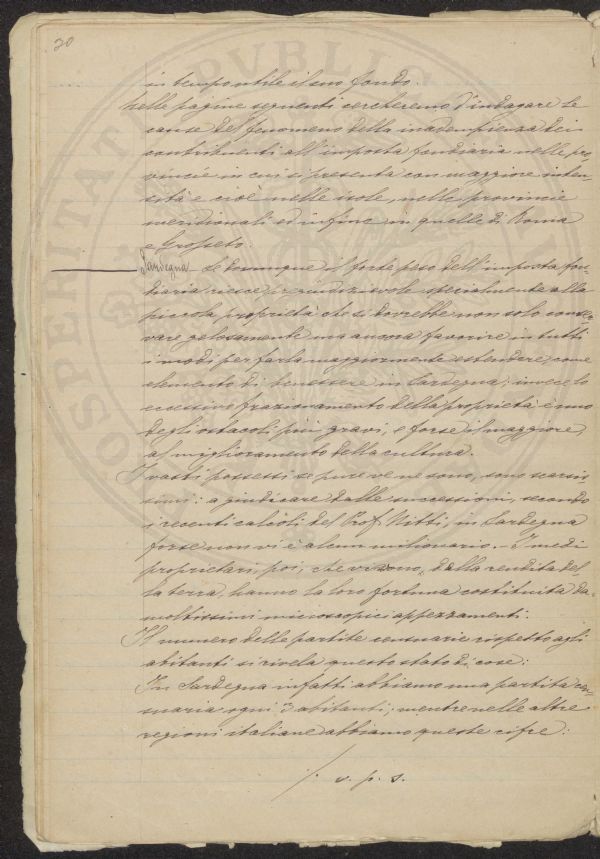 20
in tempo utile il suo fondo.
Nelle pagine seguenti cercheremo d'indagare le
cause del fenomeno della inadempienza dei
contribuenti all'imposta fondiaria nelle pro-
vincie in cui si presenta con maggiore inten-
sità e cioè nelle isole, nelle provincie
meridionali ed infine in quelle di Roma
e Grosseto.
Sardegna Se dovunque il forte peso dell'imposta fon-
diaria riesce pregiudizievole specialmente alla
piccola proprietà che si dovrebbe non solo conser-
vare gelosamente ma ancora favorire in tutti
i modi per farla maggiormente estendere, come
elemento di benessere in Sardegna; invece lo
eccessivo frazionamento della proprietà è uno
degli ostacoli più gravi, e forse il maggiore,
al miglioramento della cultura.
I vasti possessi se pure ve ne sono, sono scarsis-
simi: a giudicare dalle successioni, secondo
i recenti calcoli del Prof. Nitti, in Sardegna
forse non vi è alcun milionario. I medi
proprietari poi, che vivono, della rendita del
la terra, hanno la loro fortuna costituita da
moltissimi microscopici appezzamenti.
Il numero delle partite censuarie rispetto agli
abitanti si rivela questo stato di cose:
In Sardegna infatti abbiamo una partita cen-
suaria ogni 3 abitanti; mentre nelle altre
regioni italiane abbiamo queste cifre:
v. p. s.